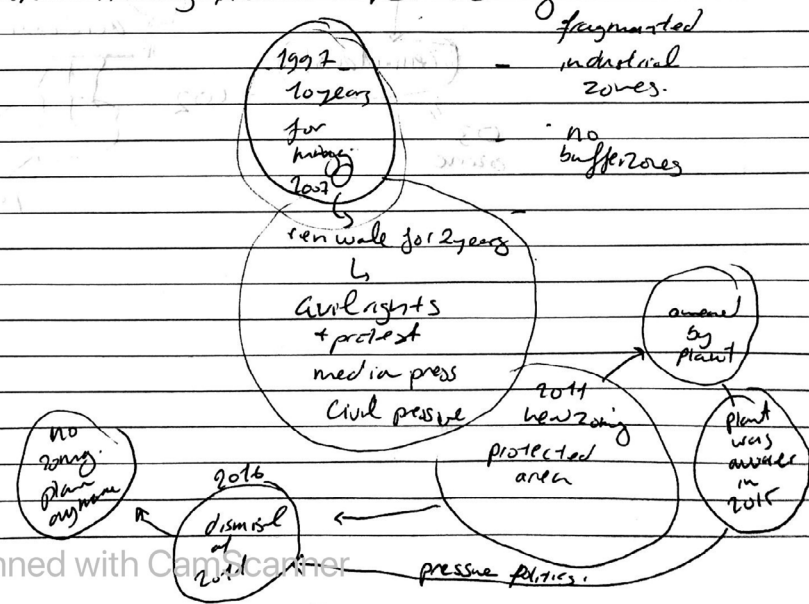 fragmented
industrial
zones.
- no
bufferzones
1997
10 years
for
2007
renwale for 2 years
Civil rights
+ protest
media press
Civil pessue
2011
new zoning
protected
area
by
plant
plant
was
in
2015
2016
dismisal
of
2011
no
zoning
plan
anymore
pressure politics.
nned with CamScanner